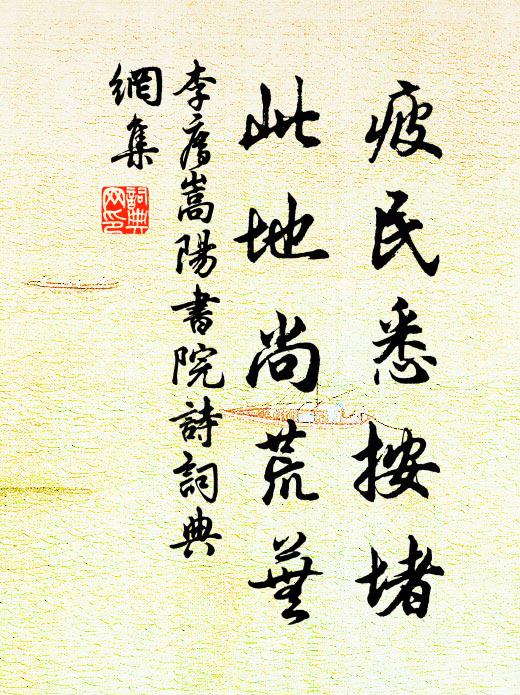 疲民悉按堵
此地尚荒蕪
李廌嵩陽書院詩詞典
網集
詞典網印